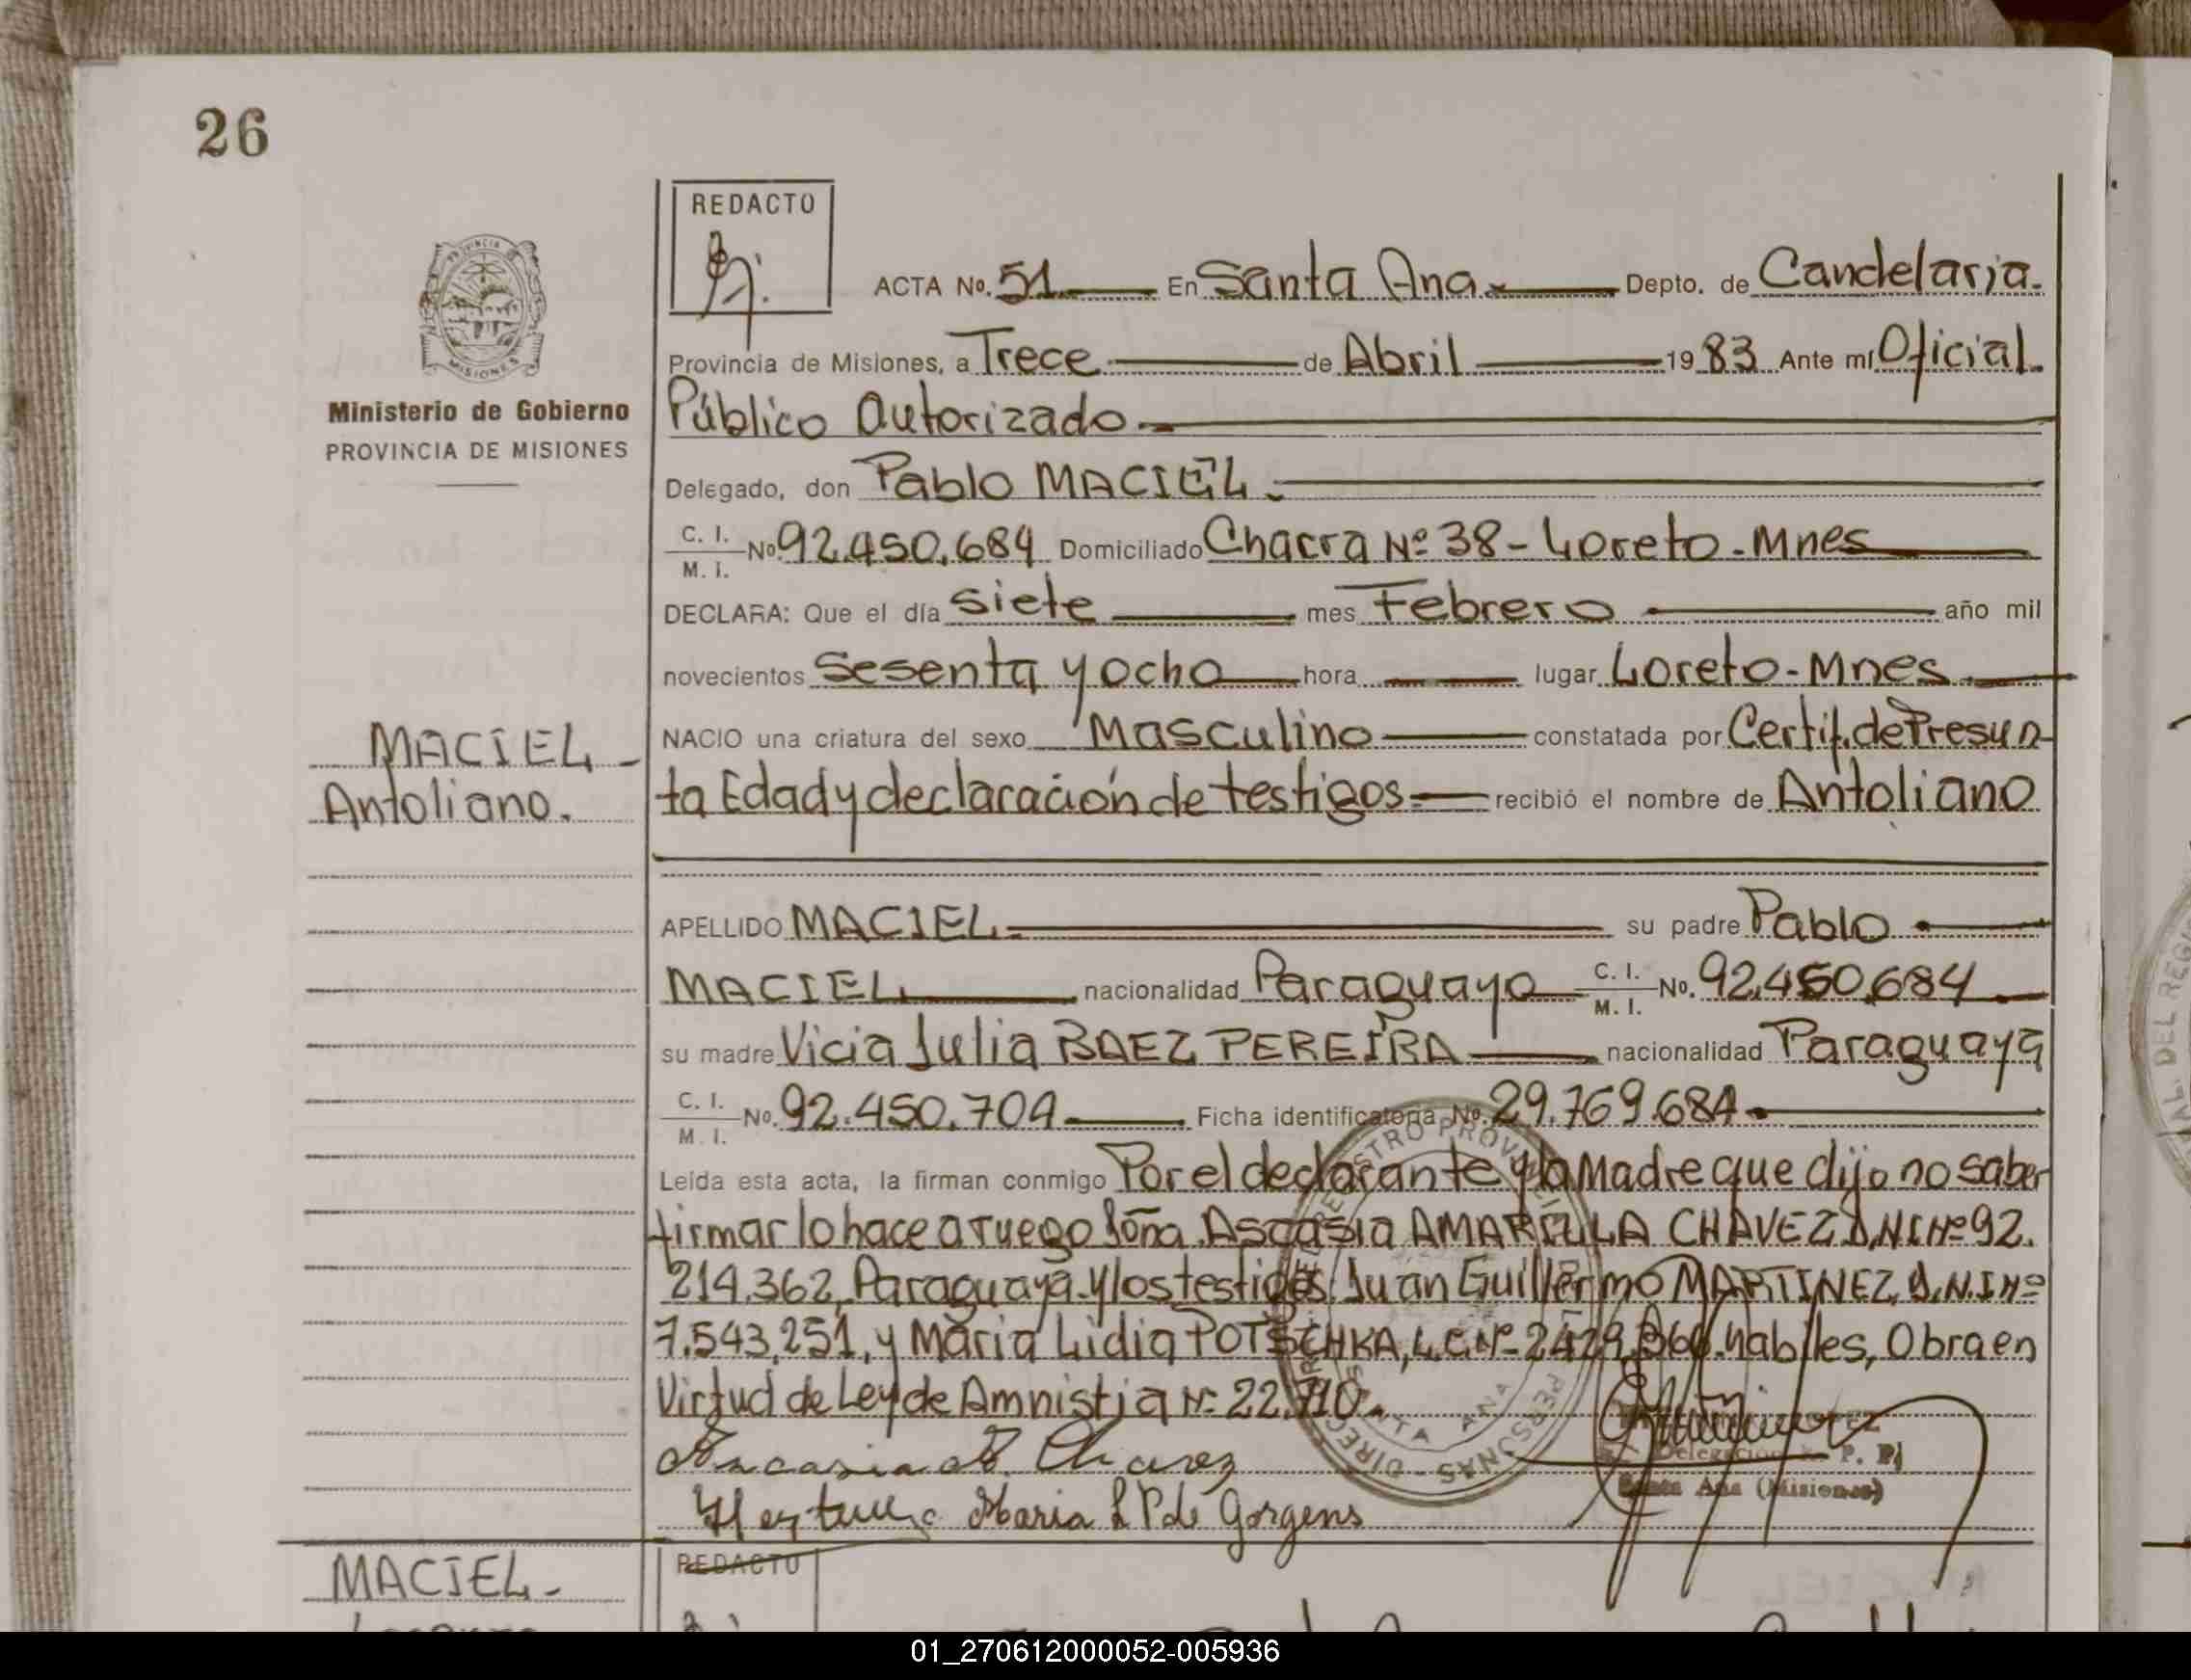 26
REDACTO
ACTA No. 51. En Santa Ana. Depto. de Candelaria.
Provincia de Misiones, a Trece de Abril 1983 Ante mí Oficial
Público Autorizado.
Ministerio de Gobierno
PROVINCIA DE MISIONES
Delegado, don Pablo MACIEL.
C. I.
M. I. No. 92.450.684 Domiciliado Chacra Nº 38 - Loreto - Mnes
DECLARA: Que el día siete mes Febrero año mil
novecientos Sesenta y ocho hora lugar Loreto - Mnes.
NACIO una criatura del sexo Masculino constatada por Certif. de Presun
MACIEL -
Antoliano.
ta Edad y declaración de testigos.- recibió el nombre de Antoliano
APELLIDO MACIEL.- su padre Pablo
MACIEL nacionalidad Paraguayo C. I.
M. I. No. 92.450.684
su madre Vicia Julia BAEZ PEREIRA nacionalidad Paraguaya
C. I.
M. I. No. 92.450.704 Ficha identificatoria No. 29.769.684
Leída esta acta, la firman conmigo Por el declarante y la Madre que dijo no saber
firmar lo hace a ruego Doña AMARILLA CHAVEZ D.N.I Nº 92.
214.362, Paraguaya y los testigos: Juan Guillermo MARTINEZ, D.N.I Nº
7.543.251, y María Lidia POTSCHKA, L.C. Nº habiles, Obra en
Virtud de Ley de Amnistia Nº 22.710.
Chavez
Maria L P de Gorgens
Delegación P. P.
Santa Ana (Misiones)
MACIEL -
REDACTO
01_270612000052-005936